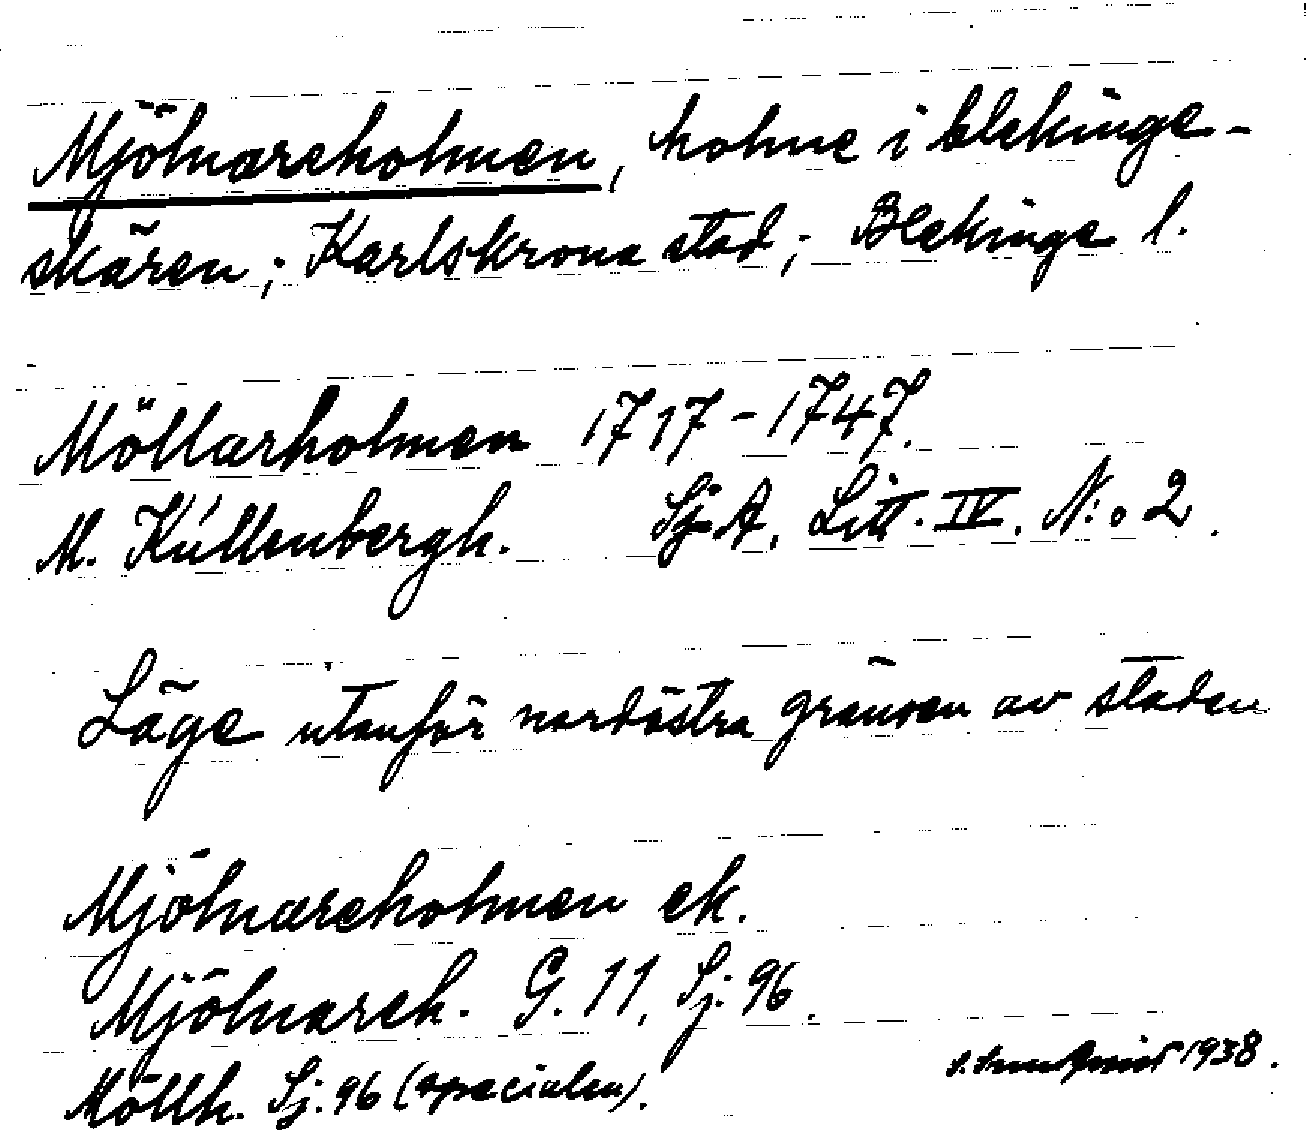 Mjölnareholmen, holme i blekinge-
skären; Karlskrona stad; Blekinge l.
Möllarholmen 1717-1747.
M. Kúllenbergh. Sj A, Litt. IV. N:o 2.
Läge utanför nordöstra gränsen av staden
Mjölnareholmen ek.
Mjölnareh. G. 11, Sj. 96.
Möllh. Sj. 96 (specialen).
1938.